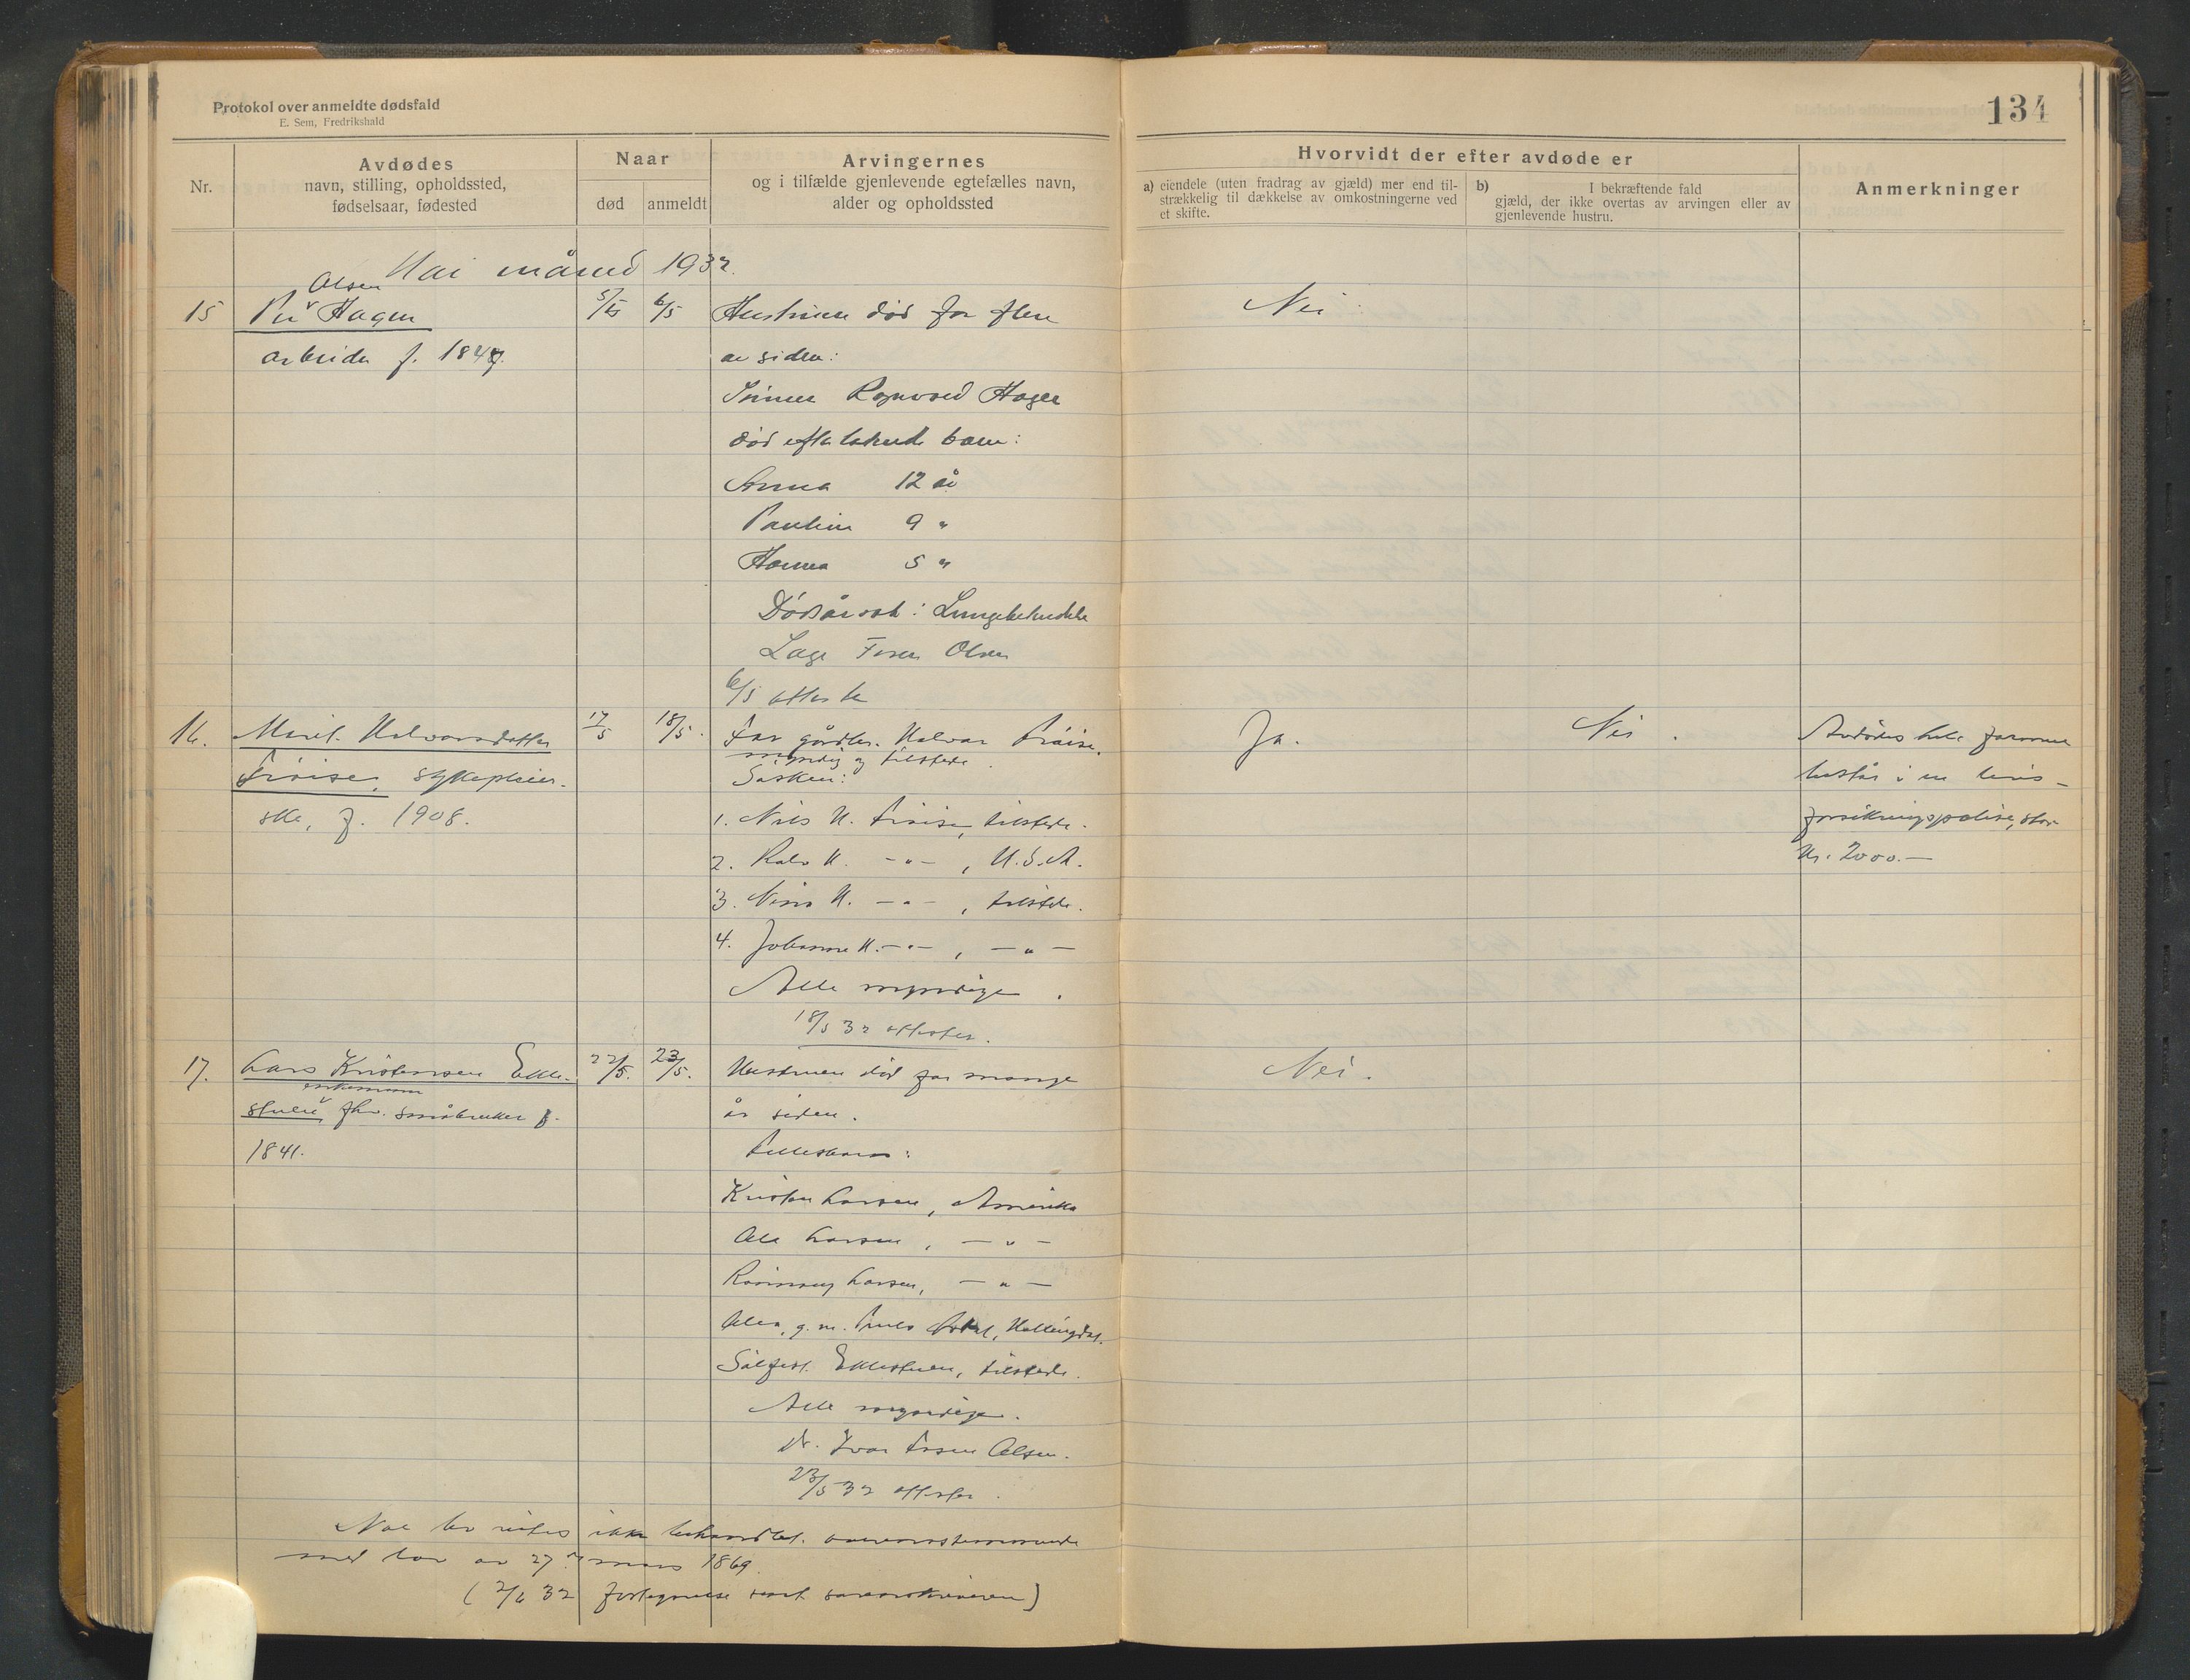 Protokol over anmeldte dødsfald
E. Sem, Fredrikshald
134
Nr.
Avdødes
navn, stilling, opholdssted,
fødselsaar, fødested
Naar
død
anmeldt
Arvingernes
og i tilfælde gjenlevende egtefælles navn,
alder og opholdssted
Hvorvidt der efter avdøde er
a) eiendele (uten fradrag av gjæld) mer end til-
strækkelig til dækkelse av omkostningerne ved
et skifte.
b) I bekræftende fald
gjæld, der ikke overtas av arvingen eller av
gjenlevende hustru.
Anmerkninger
Mai måned 1932.
Olsen
15 Per Hagen 5/5 6/5 Hustruen død for flere Nei
arbeider f. 1847 år siden:
Sønnen Hagen
død efterlatende barn:
Anna 12 år
Pauline 9 "
Hanna 5 "
Dødsårsak: Lungebetendelse
Læge Olsen
6/5 attester
16. Marit Halvorsdatter 17/5 18/5. Far gårdbr. Halvor Ja. Nei. Avdødes hele formue
myndig og tilstede
sykepleier- Søsken: består i en livs-
ske, f. 1908. 1. Nils H. tilstede. forsikringspolise, stor
2. H. -"-, U.S.A. kr. 2000.-
3. H. -"-, tilstede.
4. Johanne H. -"-, -"-
Alle myndige.
18/5 32 attester.
17. Lars Kristensen Ekle- 22/5. 23/5. Hustruen død for mange Nei.
enkemann
stuen, fhv. småbruker f. år siden.
1841. Fellesbarn:
Kristen Larsen, Amerika
Ole Larsen, -"-
Larsen, -"-
g. m. Hallingdal.
Eklestuen, tilstede.
Alle myndige.
Dr. Ivar Olsen.
23/5 32 attester.
ikke behandlet overensstemmende
med lov av 27de mars 1869.
(2/6 32 fortegnelse sendt sorenskriveren)